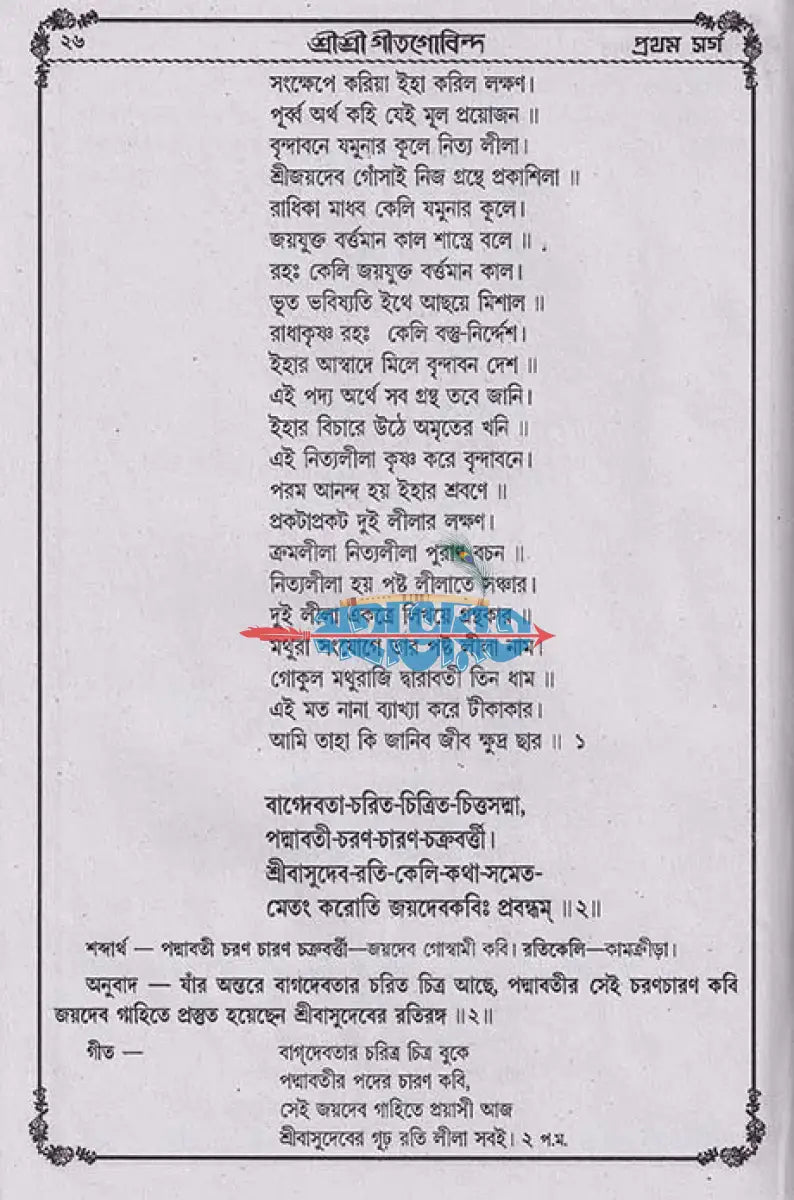 ২৬ শ্রীশ্রী গীতগোবিন্দ প্রথম সর্গ
সংক্ষেপে করিয়া ইহা করিল লক্ষণ।
পূর্ব্ব অর্থ কহি যেই মূল প্রয়োজন ॥
বৃন্দাবনে যমুনার কূলে নিত্য লীলা।
শ্রীজয়দেব গোঁসাই নিজ গ্রন্থে প্রকাশিলা ॥
রাধিকা মাধব কেলি যমুনার কূলে।
জয়যুক্ত বর্ত্তমান কাল শাস্ত্রে বলে ॥
রহঃ কেলি জয়যুক্ত বর্ত্তমান কাল।
ভূত ভবিষ্যতি ইথে আছয়ে মিশাল ॥
রাধাকৃষ্ণ রহঃ কেলি বস্তু-নির্দ্দেশ।
ইহার আস্বাদে মিলে বৃন্দাবন দেশ ॥
এই পদ্য অর্থে সব গ্রন্থ তবে জানি।
ইহার বিচারে উঠে অমৃতের খনি ॥
এই নিত্যলীলা কৃষ্ণ করে বৃন্দাবনে।
পরম আনন্দ হয় ইহার শ্রবণে ॥
প্রকটাপ্রকট দুই লীলার লক্ষণ।
ক্রমলীলা নিত্যলীলা পুরাণ বচন ॥
নিত্যলীলা হয় পষ্ট লীলাতে সঞ্চার।
দুই লীলা একত্রে লিখয়ে গ্রন্থকার ॥
মথুরা সংযোগে তার পষ্ট লীলা নাম।
গোকুল মথুরাজি দ্বারাবতী তিন ধাম ॥
এই মত নানা ব্যাখ্যা করে টীকাকার।
আমি তাহা কি জানিব জীব ক্ষুদ্র ছার ॥ ১
বাগ্দেবতা-চরিত-চিত্রিত-চিত্তসদ্মা,
পদ্মাবতী-চরণ-চারণ-চক্রবর্ত্তী।
শ্রীবাসুদেব-রতি-কেলি-কথা-সমেত-
মেতং করোতি জয়দেবকবিঃ প্রবন্ধম্ ॥২॥
শব্দার্থ — পদ্মাবতী চরণ চারণ চক্রবর্ত্তী—জয়দেব গোস্বামী কবি। রতিকেলি—কামক্রীড়া।
অনুবাদ — যাঁর অন্তরে বাগদেবতার চরিত চিত্র আছে, পদ্মাবতীর সেই চরণচারণ কবি
জয়দেব গাহিতে প্রস্তুত হয়েছেন শ্রীবাসুদেবের রতিরঙ্গ ॥২॥
গীত — বাগ্‌দেবতার চরিত্র চিত্র বুকে
পদ্মাবতীর পদের চারণ কবি,
সেই জয়দেব গাহিতে প্রয়াসী আজ
শ্রীবাসুদেবের গূঢ় রতি লীলা সবই। ২ প.ম.